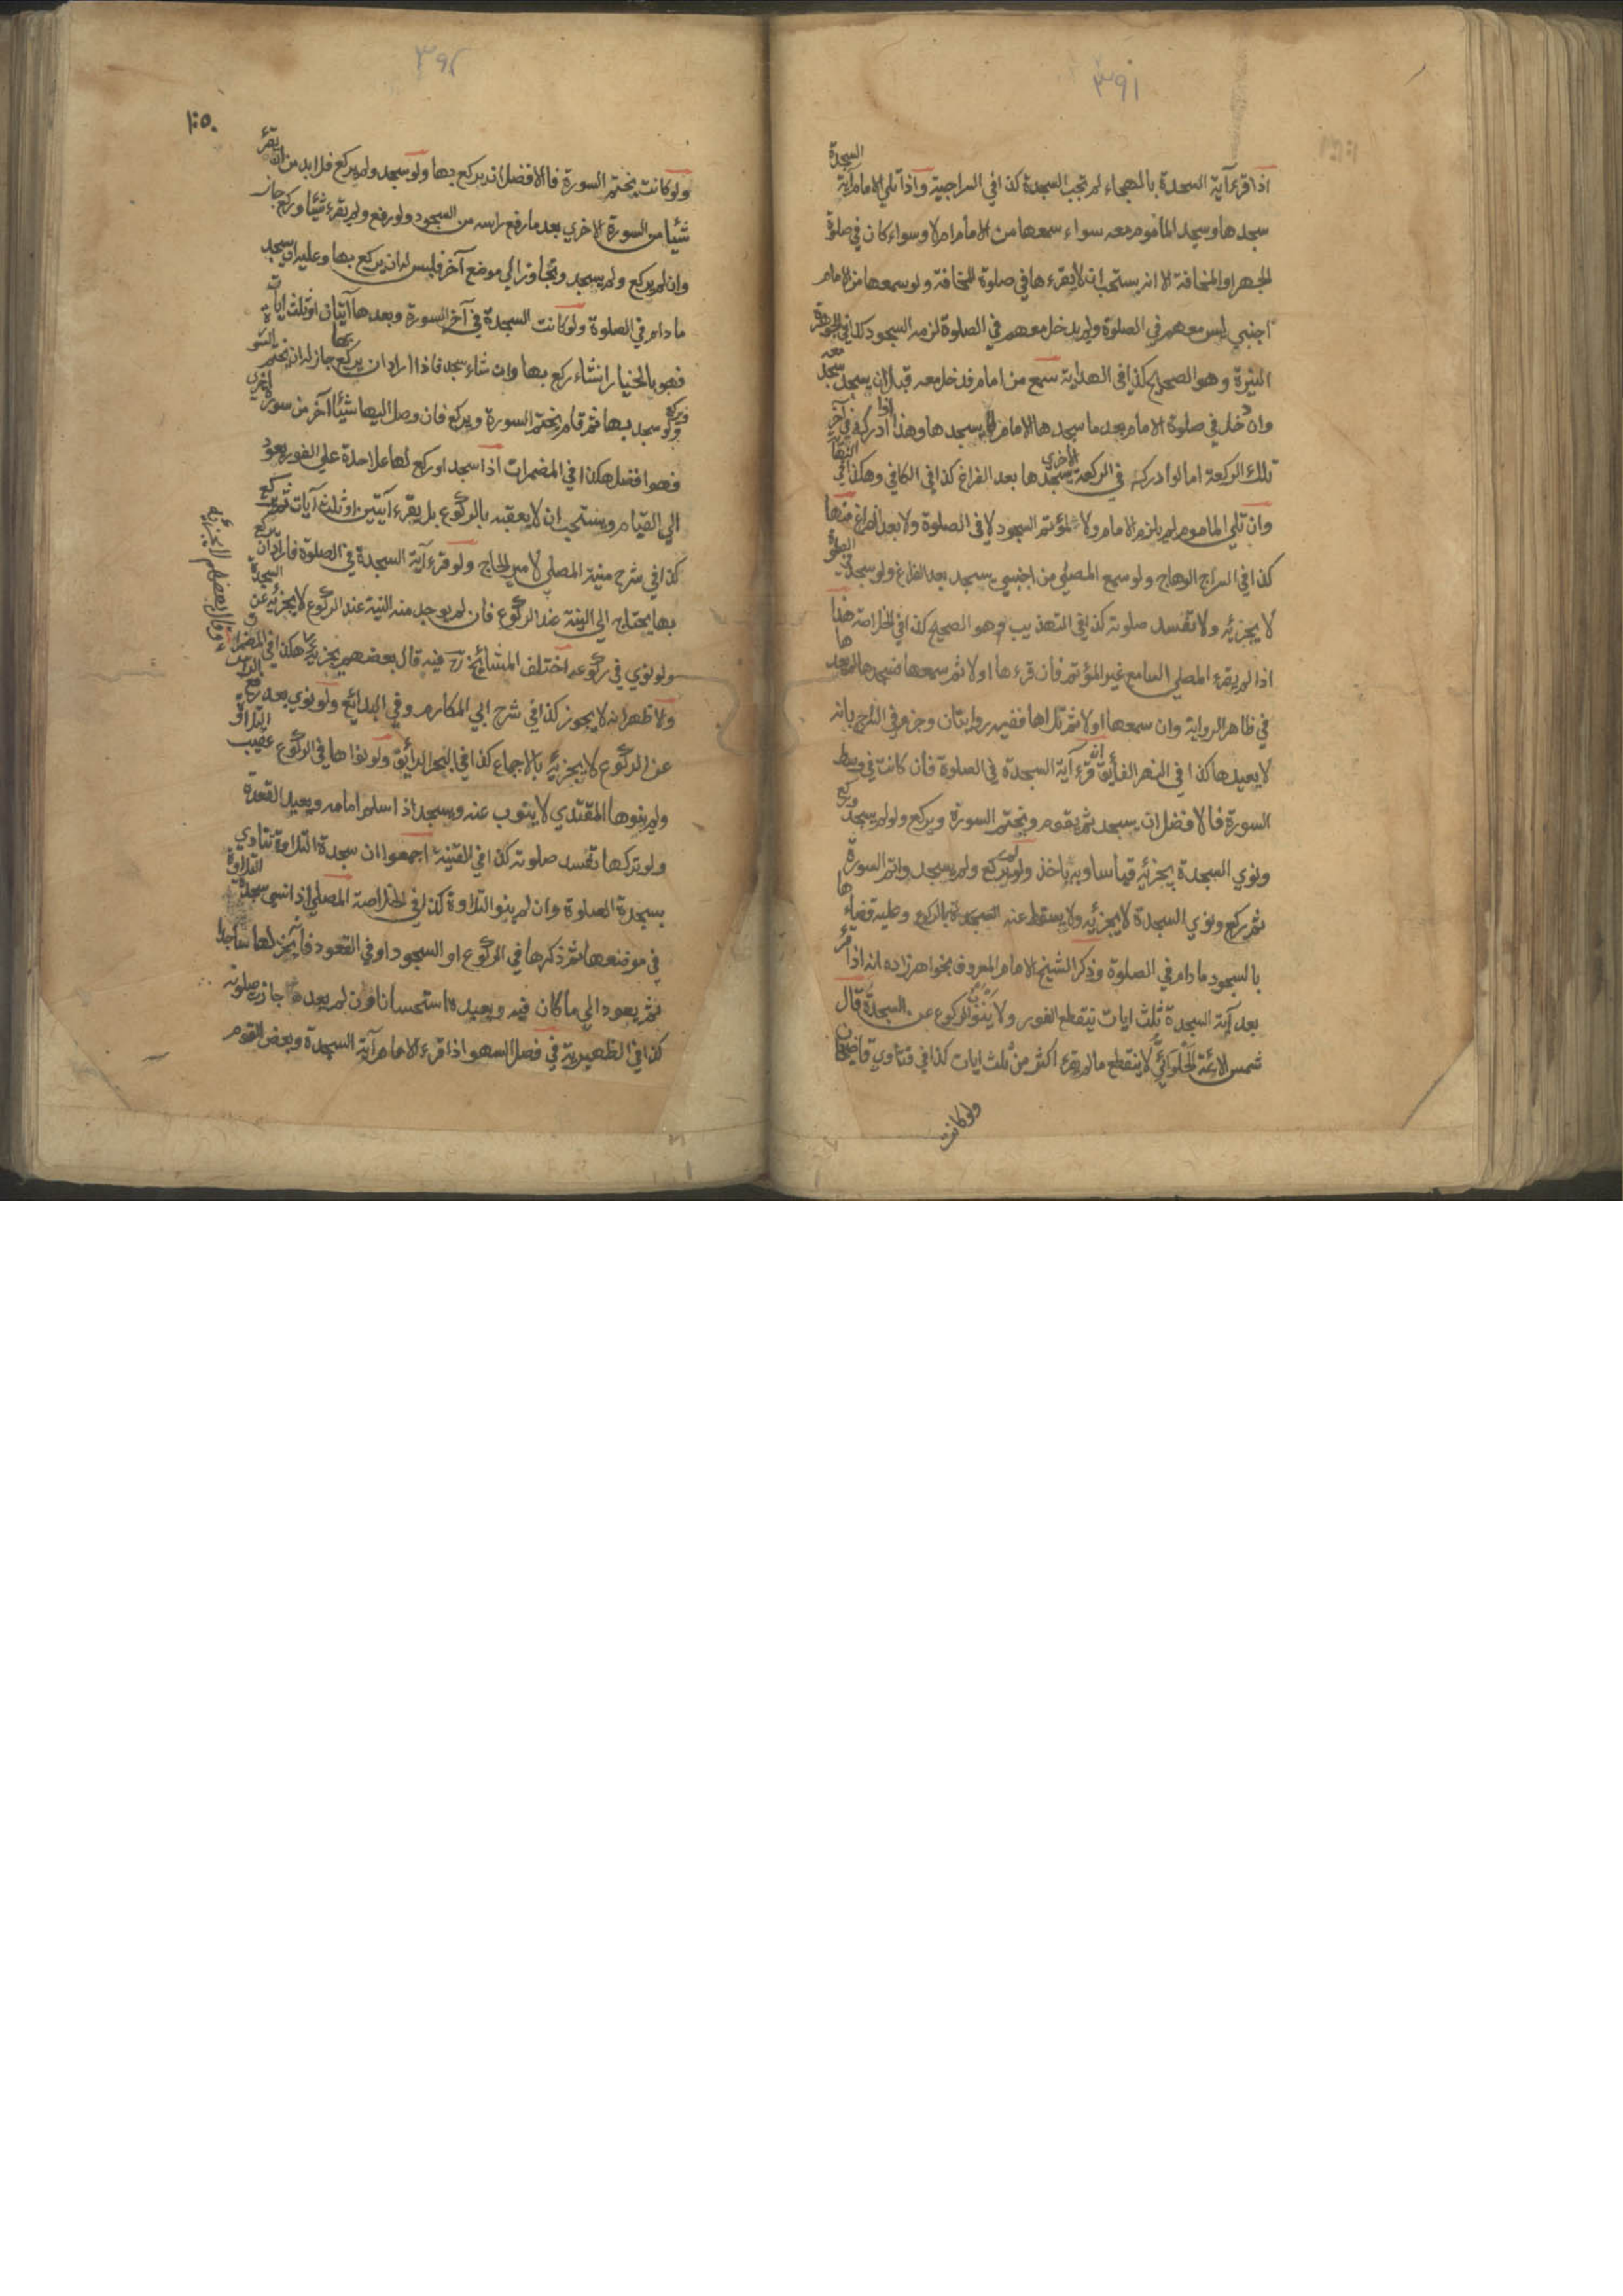 ٣٩١
اذا قرء آية السجدة بالهجاء لم تجب السجدة كذا في السراجية واذا تلي الامام آية السجدة
سجدها وسجد المأموم معه سواء سمعها من الامام ام لا وسواء كان في صلوة
الجهر او المخافة الا انه يستحب ان لا يقرءها في صلوة المخافة ولو سمعها من الامام
اجنبي ليس معهم في الصلوة ولم يدخل معهم في الصلوة لزمه السجود كذا في الجوهرة
النيرة وهو الصحيح كذا في الهداية سمع من امام فدخل معه قبل ان يسجد سجد معه
وان دخل في صلوة الامام بعد ما سجدها الامام لا يسجدها وهذا اذا ادركه في آخر
تلك الركعة اما لو ادركه في الركعة الاخرى يسجدها بعد الفراغ كذا في الكافي وهكذا في النهاية
وان تلي الماموم لم يلزم الامام ولا المؤتم السجود لا في الصلوة ولا بعد الفراغ منها
كذا في السراج الوهاج ولو سمع المصلي من اجنبي يسجد بعد الفراغ ولو سجد في الصلوة
لا يجزئه ولا تفسد صلوته كذا في التهذيب وهو الصحيح كذا في الخلاصة هذا
اذا لم يقرء المصلي السامع غير المؤتم فان قرءها اولا ثم سمعها فسجدها لم يعدها
في ظاهر الرواية وان سمعها اولا ثم تلاها ففيه روايتان وجزم في السراج بانه
لا يعيدها كذا في النهر الفايق قرء آية السجدة في الصلوة فان كانت في وسط
السورة فالافضل ان يسجد ثم يقوم ويختم السورة ويركع ولو لم يسجد وركع
ونوي السجدة يجزئه قياسا وبه ياخذ ولو لم يركع ولم يسجد واتم السورة
ثم ركع ونوي السجدة لا يجزئه ولا يسقط عنه السجدة بالركوع وعليه قضاءها
بالسجود ما دام في الصلوة وذكر الشيخ الامام المعروف بخواهر زاده انه اذا قرء
بعد آية السجدة ثلث ايات ينقطع الفور ولا ينوب الركوع عن السجدة قال
شمس الائمة الحلوائي لا ينقطع ما لم يقرء اكثر من ثلث ايات كذا في فتاوي قاضيخان
ولو كانت
٣٩٢
١٥٠
ولو كانت بختم السورة فالافضل ان يركع بها ولو سجد ولم يركع فلا بد من ان يقرء
شيئا من السورة الاخري بعد ما رفع راسه من السجود ولو رفع ولم يقرء شيئا وركع جاز
وان لم يركع ولم يسجد وتجاوز الي موضع آخر فليس له ان يركع بها وعليه ان يسجد
ما دام في الصلوة ولو كانت السجدة في آخر السورة وبعدها آيتان او ثلث ايات
فهو بالخيار ان شاء ركع بها وان شاء سجد فاذا اراد ان يركع بها جاز له ان يختم السورة
ويركع ولو سجد بها ثم قام يختم السورة ويركع فان وصل اليها شيئا آخر من سورة اخري
فهو افضل هكذا في المضمرات اذا سجد او ركع لها علاحدة علي الفور يعود
الي القيام ويستحب ان لا يعقبه بالركوع بل يقرء آيتين او ثلث آيات ثم يركع
كذا في شرح منية المصلي لامير الحاج ولو قرء آية السجدة في الصلوة فاراد ان يركع
بها يحتاج الي النية عند الركوع فان لم يوجد منه النية عند الركوع لا يجزئه عن السجدة
ولو نوي في ركوعه اختلف المشائخ رح فيه قال بعضهم يجزئه هكذا في المضمرات
وقال بعضهم لا يجزئه
ولاظهر انه لا يجوز كذا في شرح ابي المكارم وفي البدائع ولو نوي بعد رفع الراس
عن الركوع لا يجزئه بالاجماع كذا في البحر الرائق ولو نواها في الركوع عقيب التلاوة
ولم ينوها المقتدي لا ينوب عنه ويسجد اذا سلم امامه ويعيد القعدة
ولو تركها تفسد صلوته كذا في القنية اجمعوا ان سجدة التلاوة تتادي
بسجدة الصلوة وان لم ينو التلاوة كذا في الخلاصة المصلي اذا نسي سجدة التلاوة
في موضعها ثم ذكرها في الركوع او السجود او في القعود فانه يخر لها ساجدا
ثم يعود الي ما كان فيه ويعيده استحسانا وان لم يعد جازت صلوته
كذا في الظهيرية في فصل السهو اذا قرء الامام آية السجدة وبعض القوم